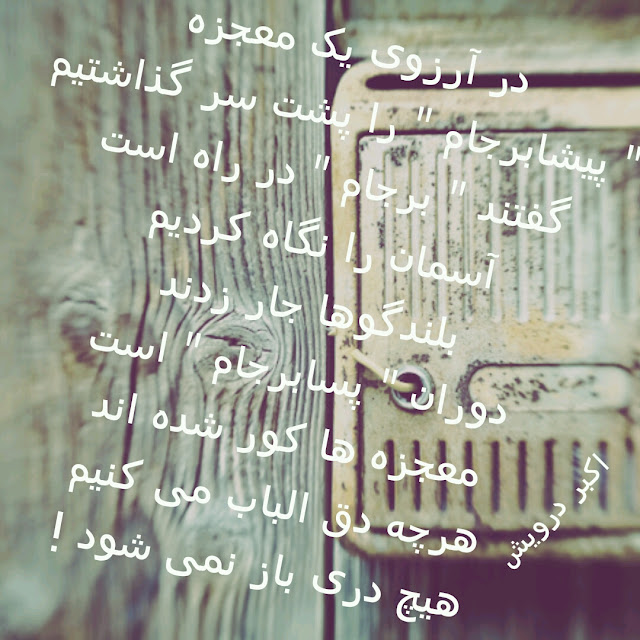 در آرزوی یک معجزه
" پیشابرجام " را پشت سر گذاشتیم
گفتند " برجام " در راه است
آسمان را نگاه کردیم
بلندگوها جار زدند
دوران " پسابرجام " است
معجزه ها کور شده اند
هرچه دق الباب می کنیم
هیچ دری باز نمی شود !
اکبر درویش